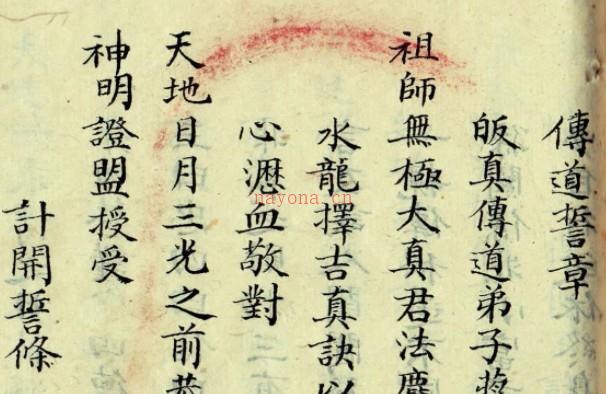 傳道誓章
皈真傳道弟子蔣
祖師無極大真君法
水龍擇吉真訣以
心瀝血敬對
天地日月三光之前恭
神明證盟授受
計開誓條
nayona.cn